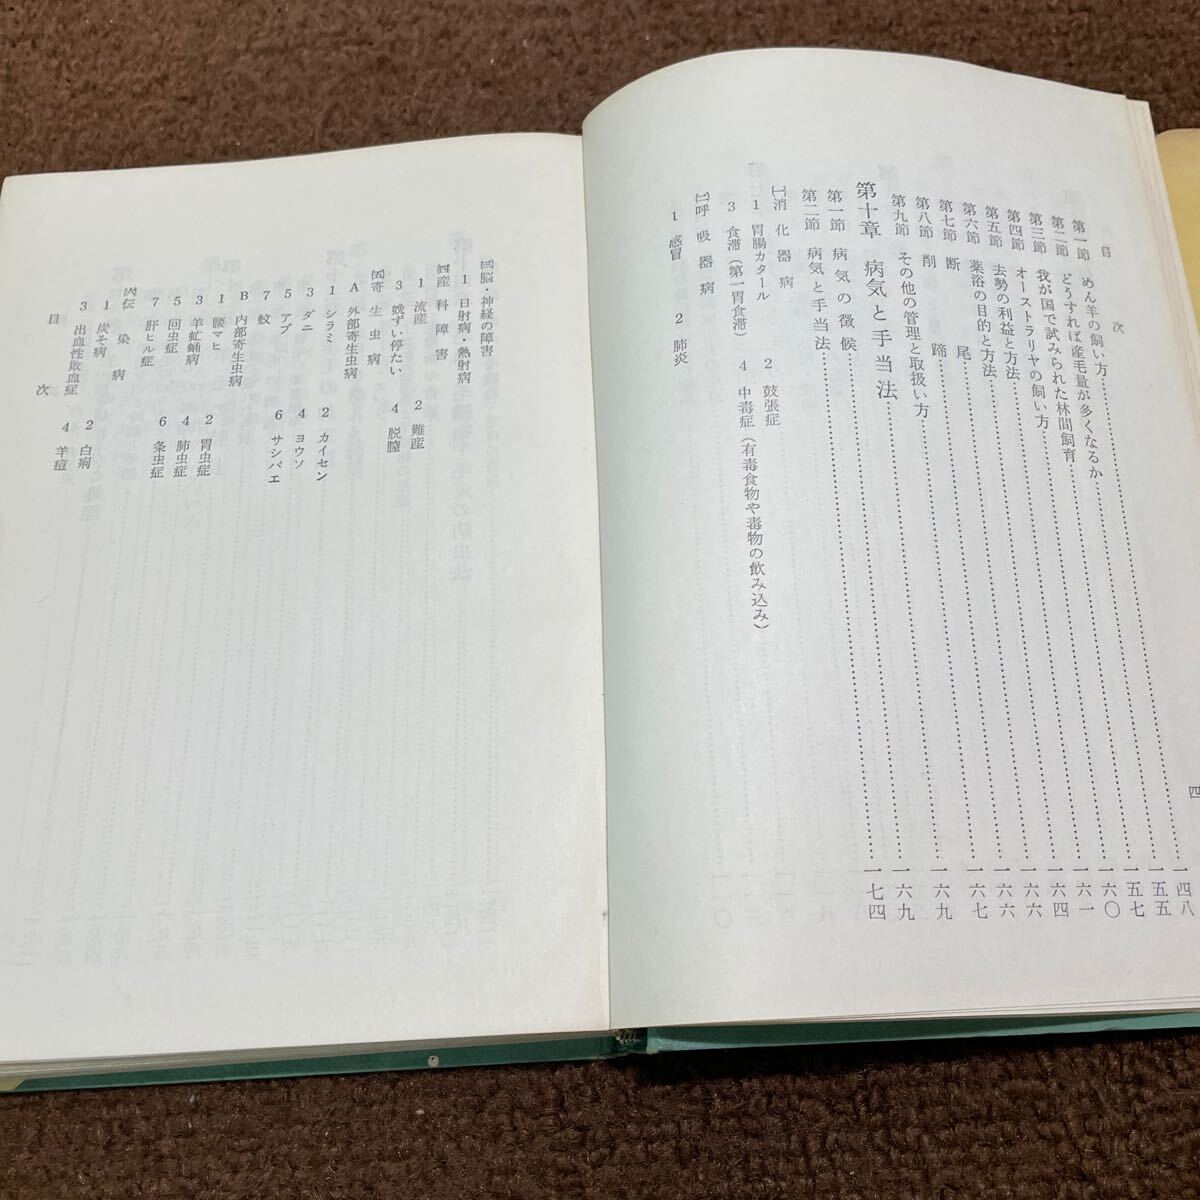 目次
第一節 めん羊の飼い方……一四八
第二節 どうすれば産毛量が多くなるか……一五五
第三節 我が国で試みられた林間飼育……一五七
第四節 オーストラリヤの飼い方……一六〇
第五節 去勢の利益と方法……一六一
第六節 薬浴の目的と方法……一六四
第七節 断尾……一六六
第八節 削蹄……一六六
第九節 その他の管理と取扱い方……一六七
第十章 病気と手当法……一六九
第一節 病気の徴候……一六九
第二節 病気と手当法……一七四
㈠消化器病
1 胃腸カタール 2 鼓張症
3 食滞(第一胃食滞) 4 中毒症(有毒食物や毒物の飲み込み)
㈡呼吸器病
1 感冒 2 肺炎
四
㈢脳・神経の障害
1 日射病・熱射病
㈣産科障害
1 流産 2 難産
3 娩ずい停たい 4 脱膣
㈤寄生虫病
A 外部寄生虫病
1 シラミ 2 カイセン
3 ダニ 4 ヨウソ
5 アブ 6 サシバエ
7 蚊
B 内部寄生虫病
1 腰マヒ 2 胃虫症
3 羊虻蛹病 4 肺虫症
5 回虫症 6 条虫症
7 肝ヒル症
㈥伝染病
1 炭そ病 2 白痢
3 出血性敗血症 4 羊痘
目次